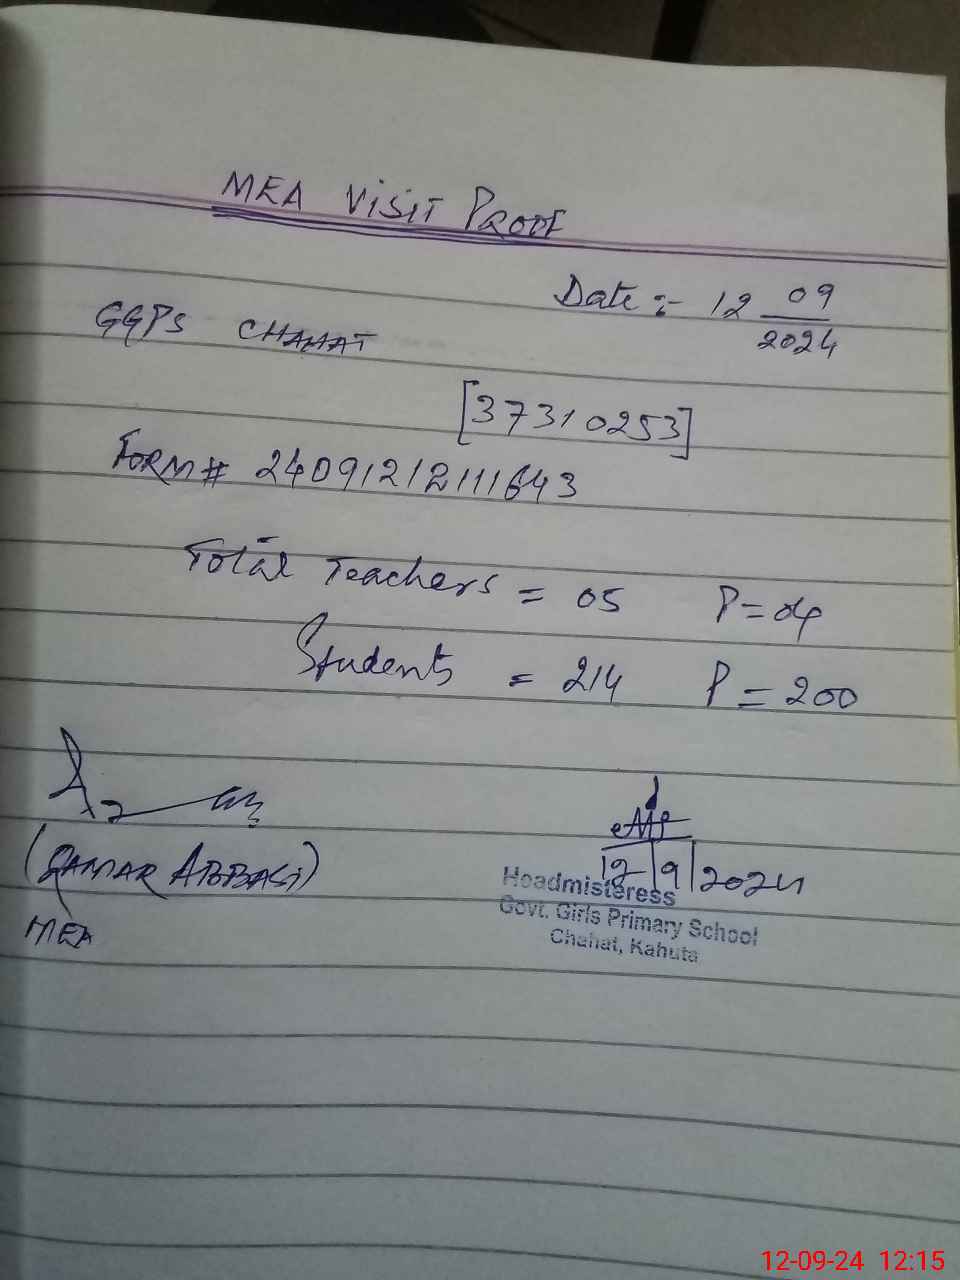 MEA VISIT PROOF
Date :- 12 09
2024
GGPS CHAHAT
[37310253]
FORM# 24091212111643
Total Teachers = 05 P=04
Students = 214 P=200
(QAMAR ABBASI)
MEA
12|9|2024
Hoadmisteress
Govt. Girls Primary School
Chahat, Kahuta
12-09-24 12:15